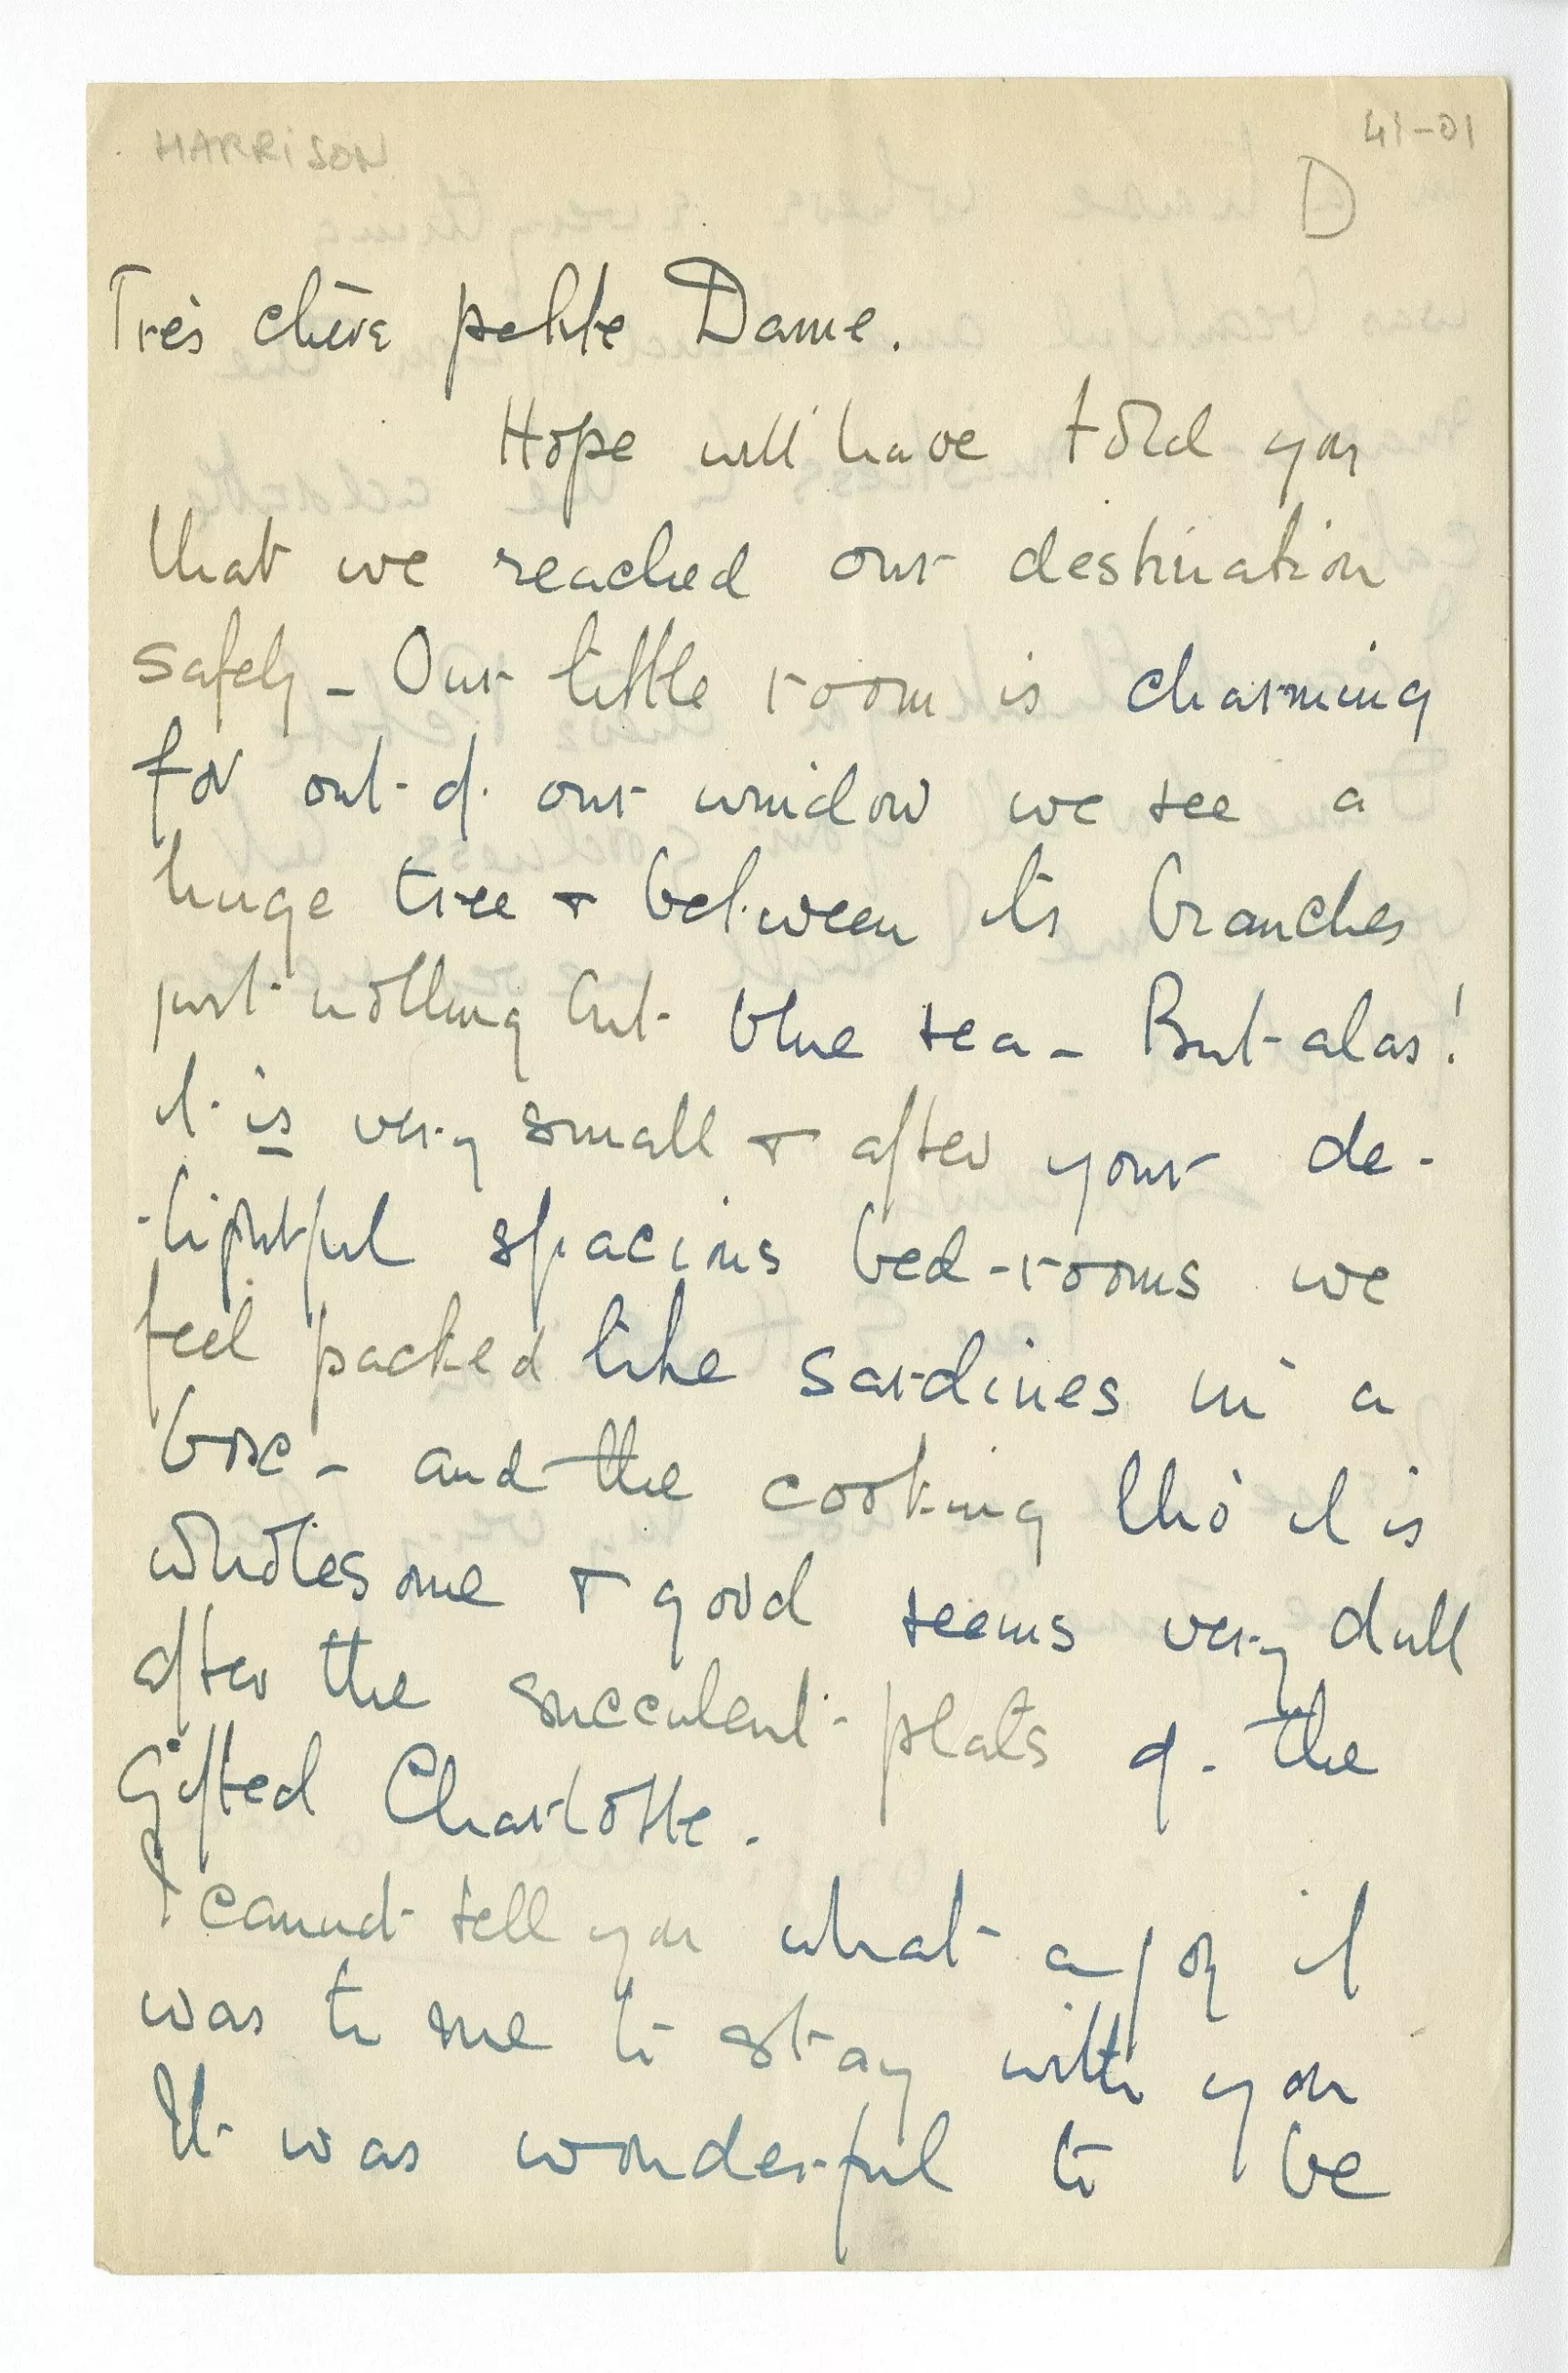 HARRISON
41-01
D
Très chère petite Dame.
Hope will have told you
that we reached our destination
safely - Our little room is charming
for out of our window we see a
huge tree + between its branches
just nothing but blue sea - But alas!
it is very small + after your de-
-lightful spacious bed-rooms we
feel packed like sardines in a
box - and the cooking tho' it is
wholesome + good seems very dull
after the succulent plats of the
Gifted Charlotte.
I cannot tell you what a joy it
was to me to stay with you
It was wonderful to be